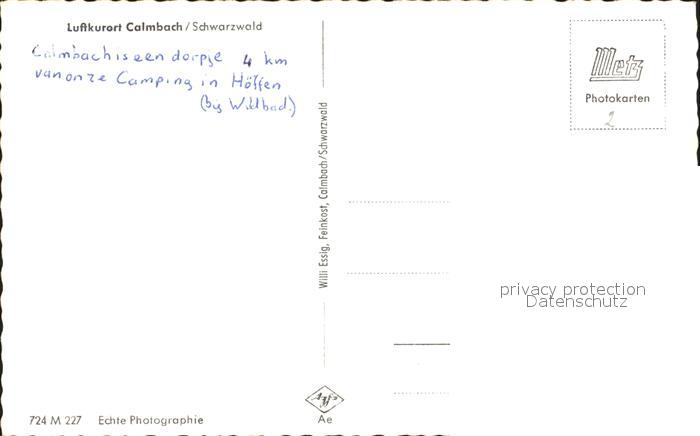 Luftkurort Calmbach / Schwarzwald
Calmbach is een dorpje 4 km
van onze Camping in Höffen
(bij Wildbad.)
Metz
Photokarten
2
Willi Essig, Feinkost, Calmbach/Schwarzwald
privacy protection
Datenschutz
724 M 227 Echte Photographie
Agfa
Ae